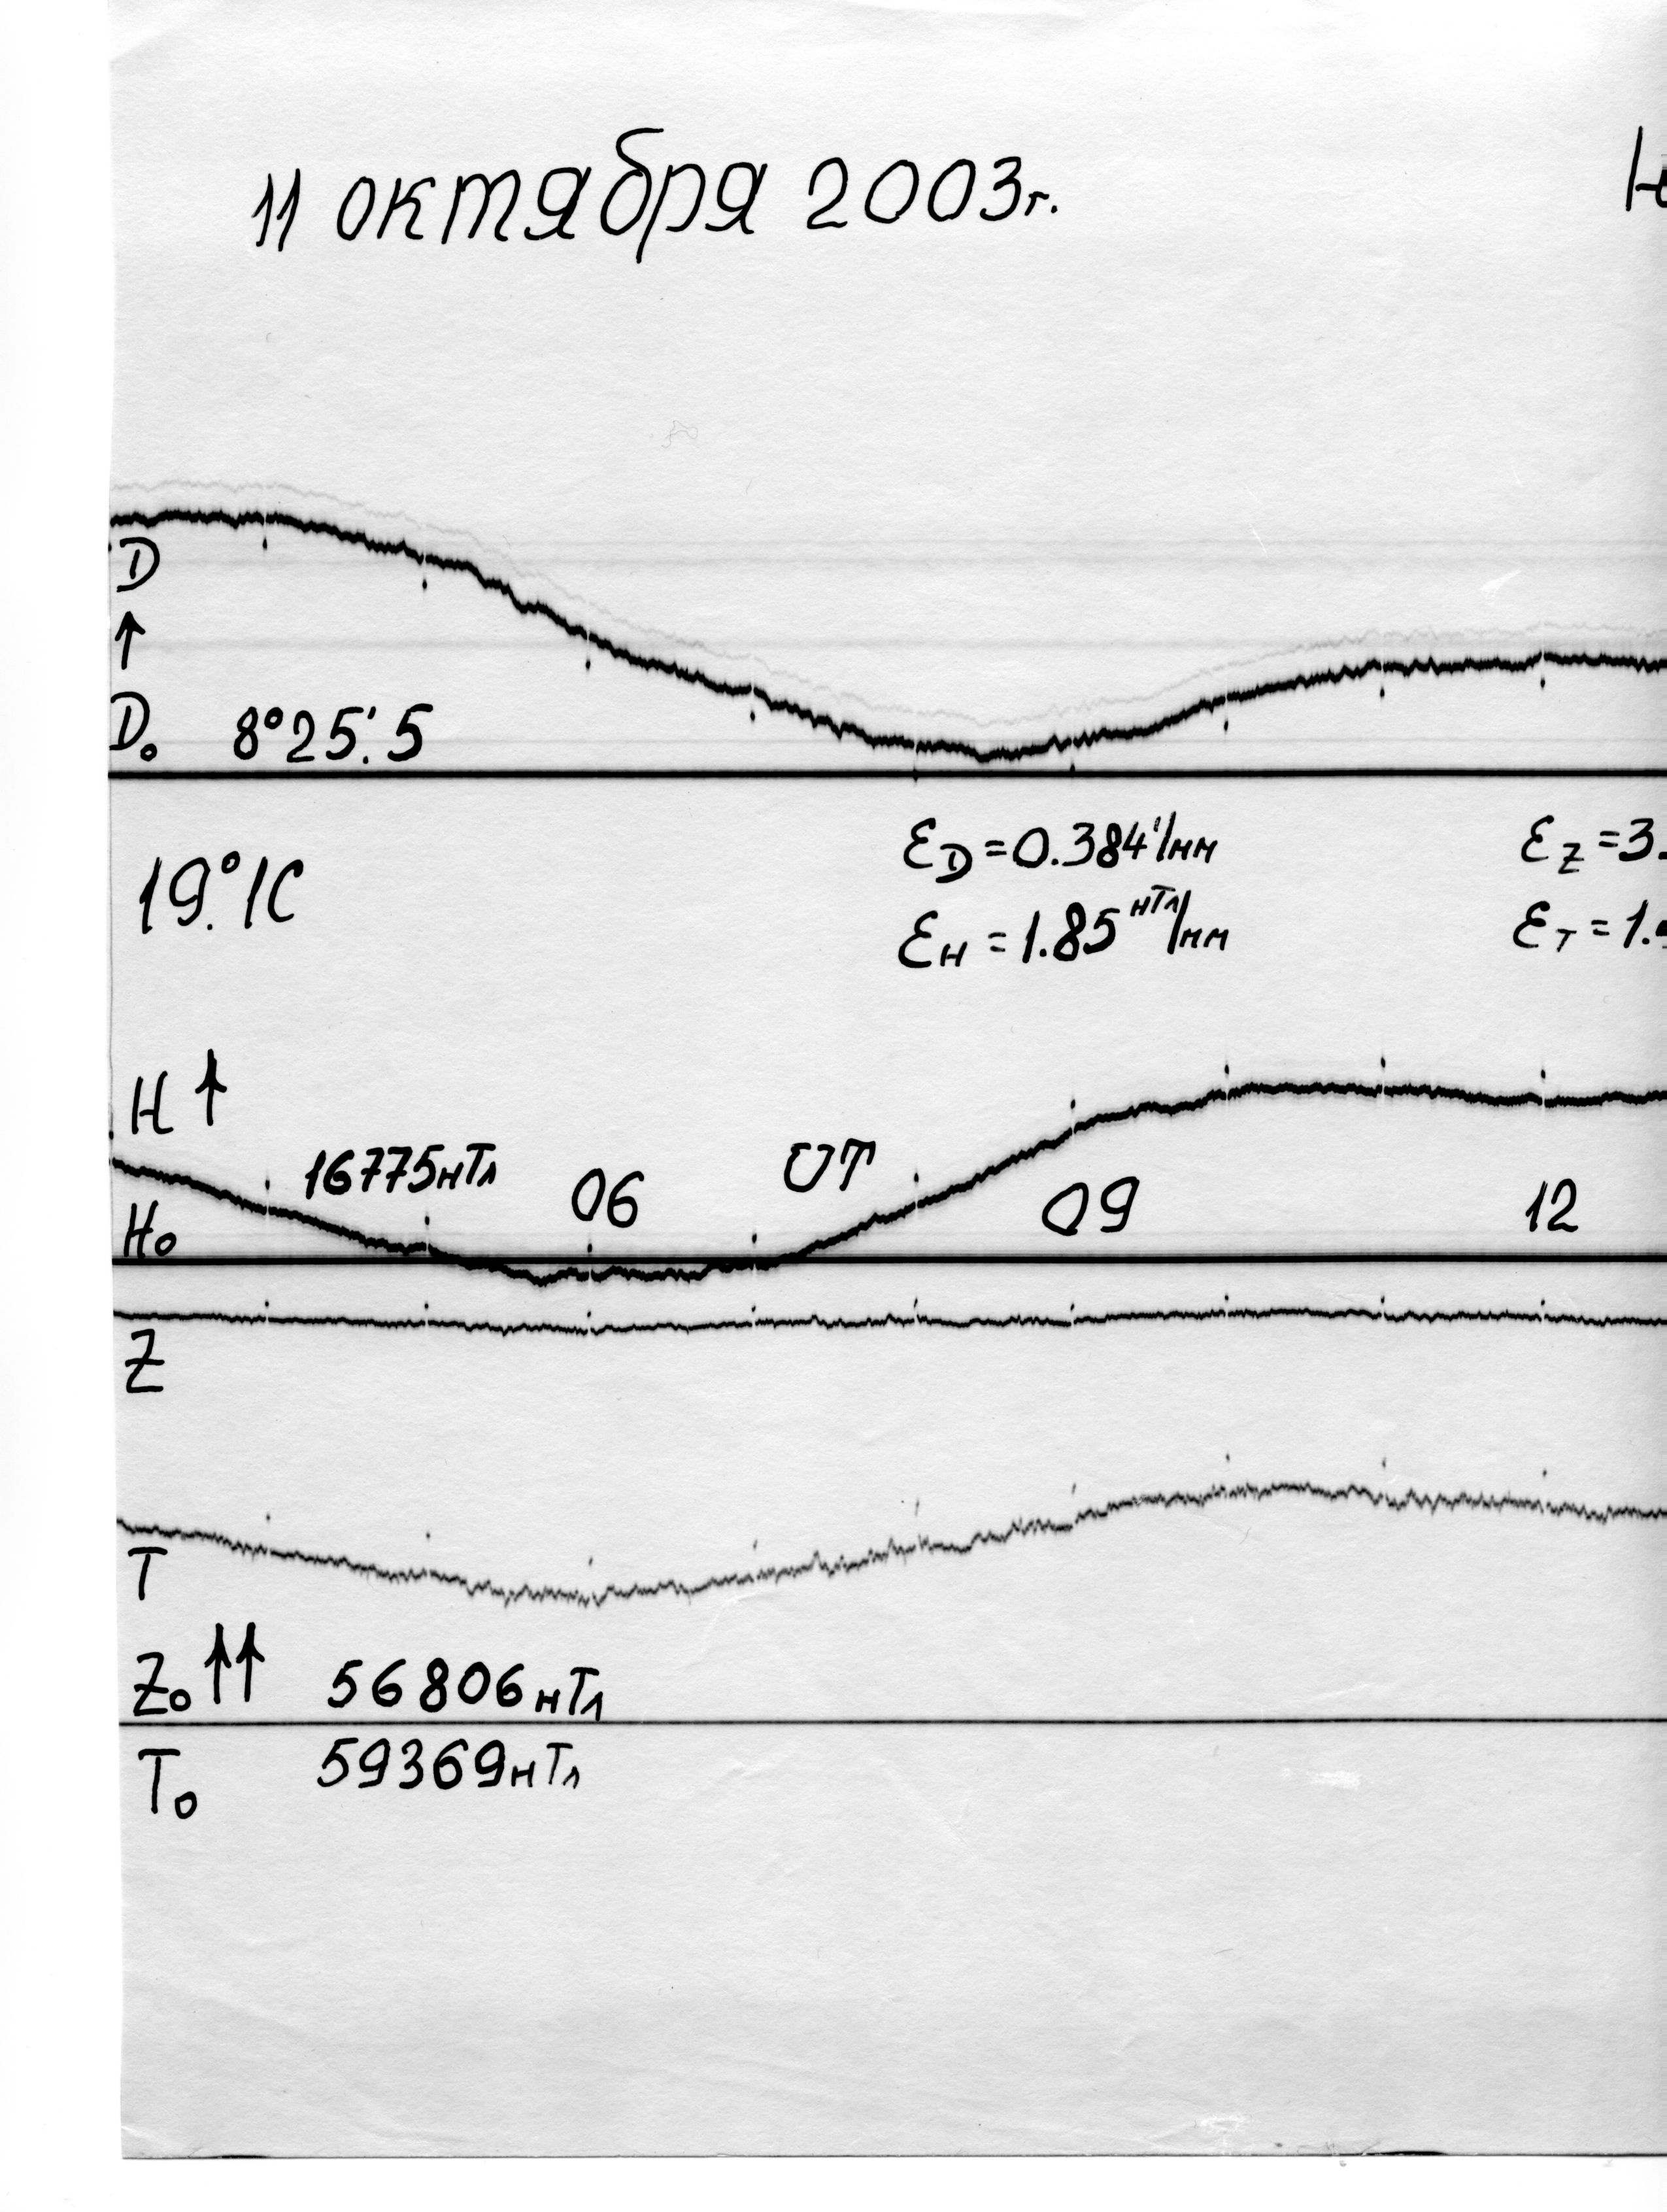 11 октября 2003г.
D
↑
D₀ 8°25'.5
εD=0.384'/мм εZ=3.
19.°1C
εH=1.85нТл/мм εT=1.
H↑
16775нТл 06 UT 09 12
H₀
Z
T
Z₀↑↑ 56806нТл
T₀ 59369нТл